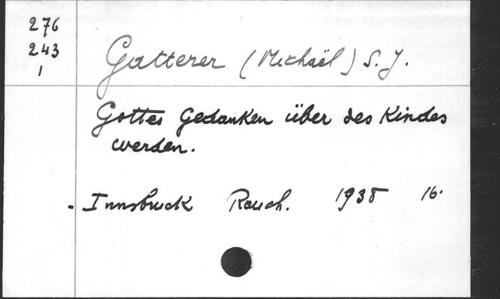 276
243
1
Gatterer (Michaël) S. J.
Gottes Gedanken über des Kindes
werden.
Innsbruck Rauch. 1938 16°